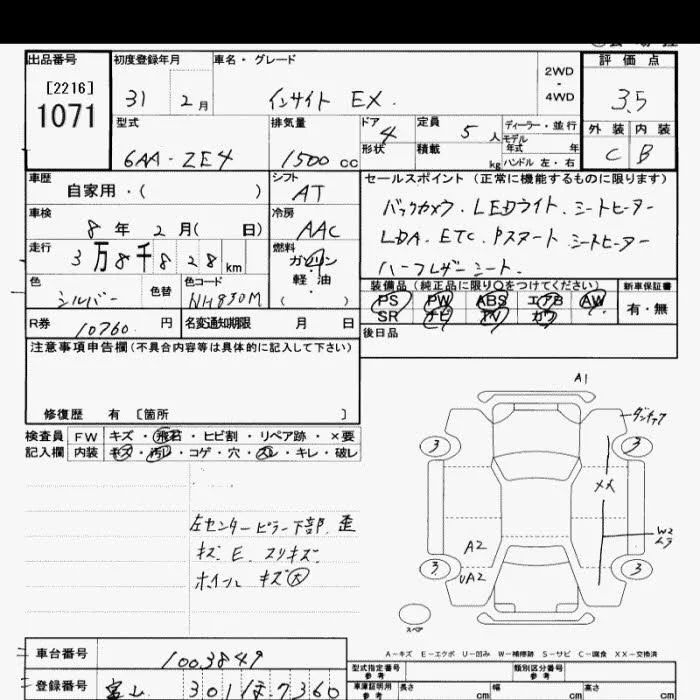 出品番号 初度登録年月 車名・グレード 評価点
[2216] 2WD
1071 31 2月 インサイト EX. ・ 3.5
4WD
型式 排気量 ドア 4 定員 5人 ディーラー・並行 外装 内装
モデル
年式 年
6AA-ZE4 1500cc 形状 積載 kg ハンドル 左・右 C B
車歴 シフト セールスポイント (正常に機能するものに限ります)
自家用・( ) AT バックカメラ. LEDライト. シートヒーター
車検 冷房
8年 2月( 日) AAC LDA. ETC. Pスタート シートヒーター
走行 燃料
3万8千828km ガソリン ハーフレザーシート.
軽・油
色 色替 色コード ( ) 装備品 (純正品に限り○をつけてください) 新車保証書
シルバー NH830M PS PW ABS エアB AW 有・無
R券 10760円 名変通知期限 月 日 SR ナビ TV カワ
注意事項申告欄(不具合内容等は具体的に記入して下さい) 後日品
修復歴 有 〔箇所 〕
検査員 FW キズ・飛石・ヒビ割・リペア跡・×要
記入欄 内装 キズ・汚レ・コゲ・穴・スレ・キレ・破レ
A1
3 3
XX
左センターピラー下部 歪 W2
キズ E. スリキズ. A2 ムラ
ホイール キズ大 UA2
3 3
スペア
A-キズ E-エクボ U-凹み W-補修跡 S-サビ C-腐食 XX-交換済
車台番号 1003849
型式指定番号 類別区分番号
参考 参考
登録番号 富山 301 ほ 7360
車庫証明用 長さ cm 幅 cm 高さ cm
参考